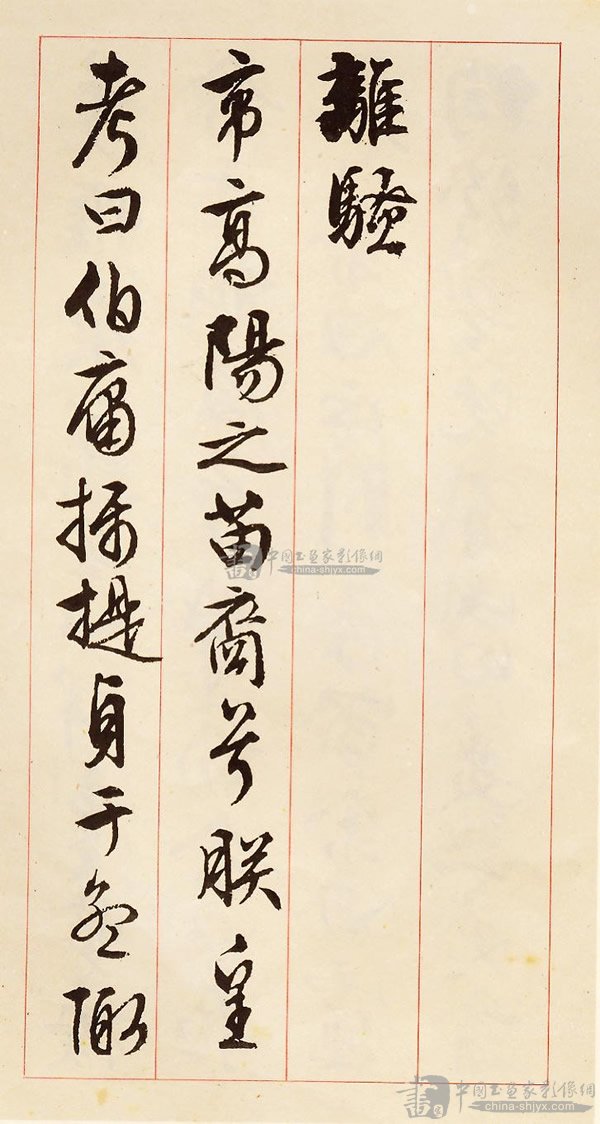 離騷
帝高陽之苗裔兮朕皇
考曰伯庸攝提貞于孟陬
書 中國書畫家影像網
china-shjyx.com
書 中國書畫家影像網
china-shjyx.com